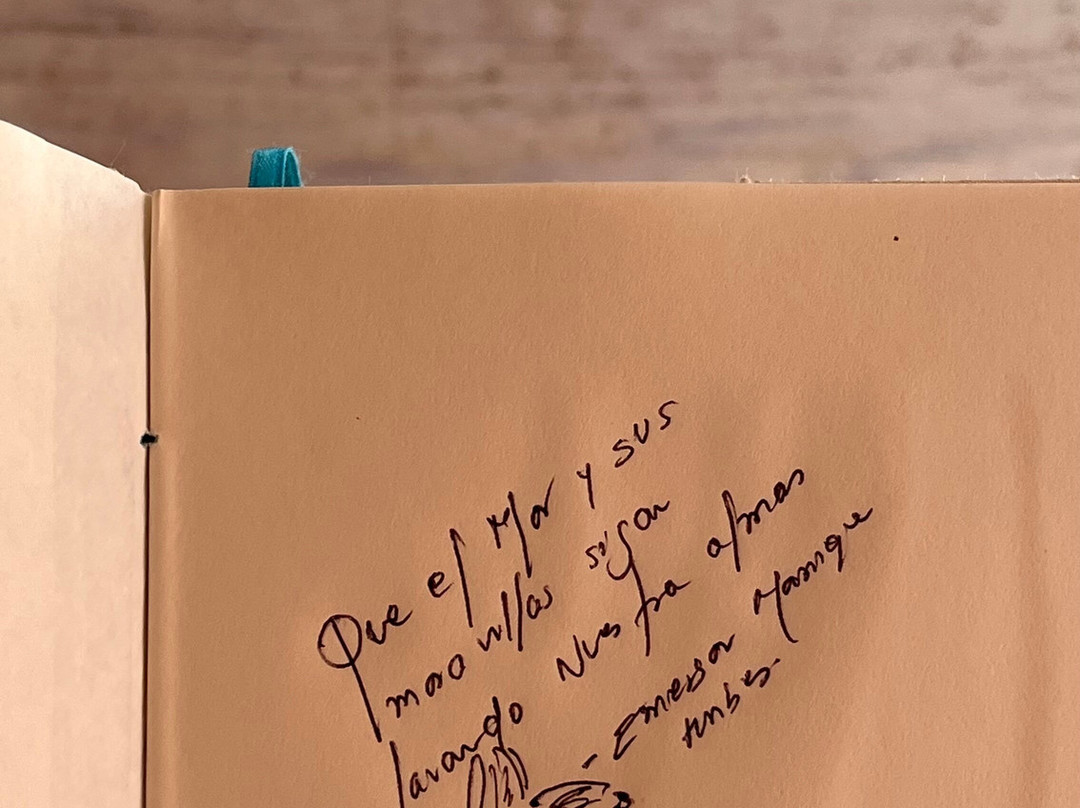 Que el Mar y sus
maravillas sigan
lavando Nuestra almas
- Emerson Manrique